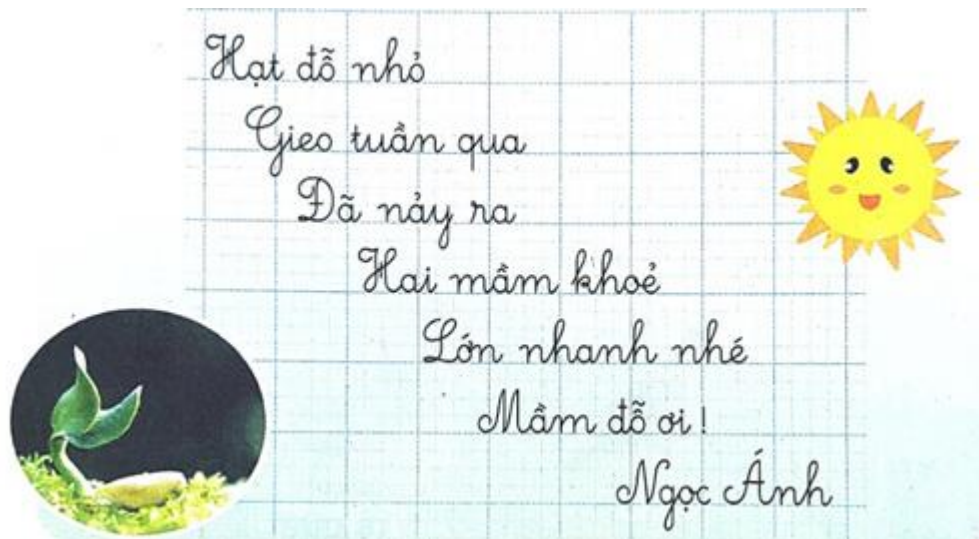 Hạt đỗ nhỏ
Gieo tuần qua
Đã nảy ra
Hai mầm khoẻ
Lớn nhanh nhé
Mầm đỗ ơi !
Ngọc Ánh